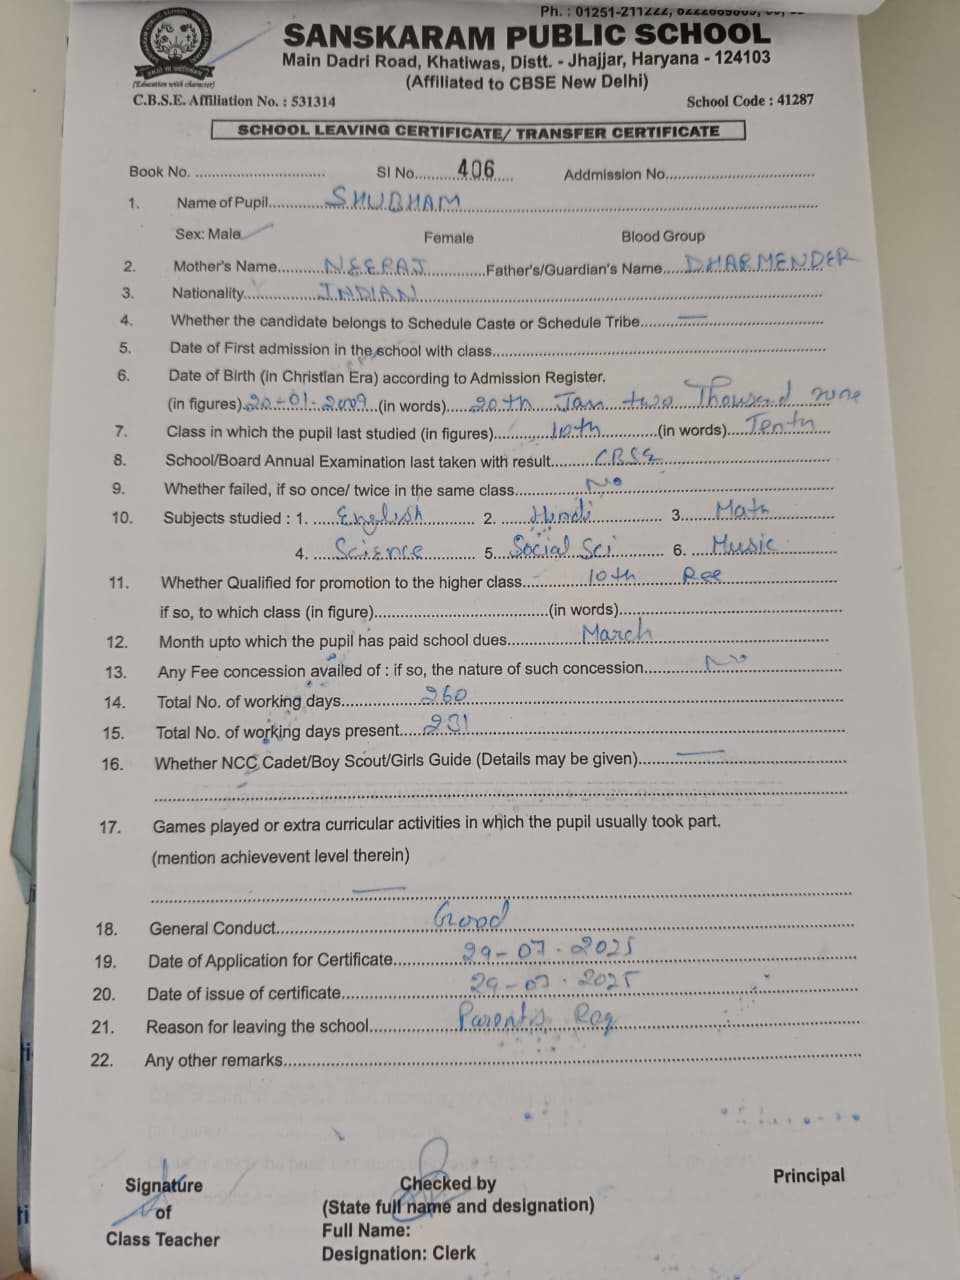 Ph. : 01251-211222,
SANSKARAM PUBLIC SCHOOL
Main Dadri Road, Khatiwas, Distt. - Jhajjar, Haryana - 124103
(Affiliated to CBSE New Delhi)
(Education with character)
C.B.S.E. Affiliation No. : 531314 School Code : 41287
SCHOOL LEAVING CERTIFICATE/ TRANSFER CERTIFICATE
Book No. ............ Sl No. 406 Addmission No............
1. Name of Pupil............ SHUBHAM
Sex: Male Female Blood Group
2. Mother's Name............ NEERAJ ............Father's/Guardian's Name...... DHARMENDER
3. Nationality............ INDIAN
4. Whether the candidate belongs to Schedule Caste or Schedule Tribe............ —
5. Date of First admission in the school with class............
6. Date of Birth (in Christian Era) according to Admission Register.
(in figures) 20-01-2009 (in words)...... 20th Jan two Thousand nine
7. Class in which the pupil last studied (in figures)............ 10th ............(in words)...... Tenth
8. School/Board Annual Examination last taken with result............ CBSE
9. Whether failed, if so once/ twice in the same class............ No
10. Subjects studied : 1. English 2. Hindi 3. Math
4. Science 5. Social Sci 6. Music
11. Whether Qualified for promotion to the higher class............ 10th
if so, to which class (in figure)............(in words)............
12. Month upto which the pupil has paid school dues............ March
13. Any Fee concession availed of : if so, the nature of such concession............ No
14. Total No. of working days............ 260
15. Total No. of working days present...... 231
16. Whether NCC Cadet/Boy Scout/Girls Guide (Details may be given)............ —
17. Games played or extra curricular activities in which the pupil usually took part.
(mention achievevent level therein)
—
18. General Conduct............ Good
19. Date of Application for Certificate............ 29-07-2025
20. Date of issue of certificate............ 29-07-2025
21. Reason for leaving the school............ Parents Req
22. Any other remarks............
Signature Checked by Principal
of (State full name and designation)
Class Teacher Full Name:
Designation: Clerk